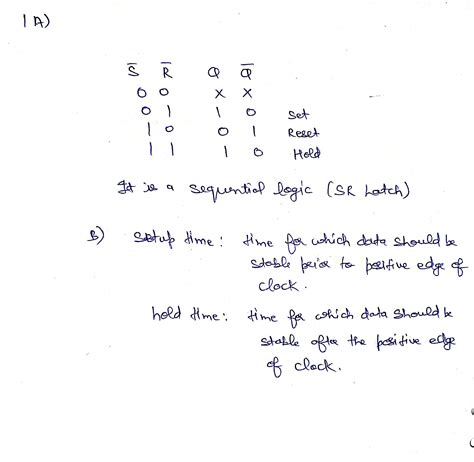 1A)
S̅ R̅ Q Q̅
0 0 x x
0 1 1 0 Set
1 0 0 1 Reset
1 1 1 0 Hold
It is a sequential logic (SR Latch)
B) setup time: time for which data should be
stable prior to positive edge of
clock.
hold time: time for which data should be
stable after the positive edge
of clock.